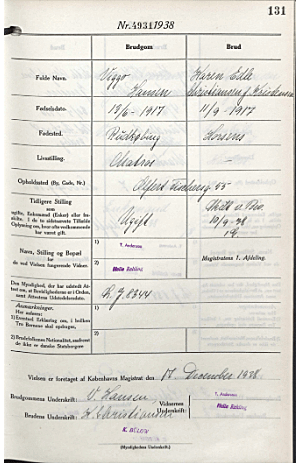 131
Nr. 4931 1938
Brudgom Brud
Fulde Navn. Viggo Hansen Karen Ella Christiansen f. Kristensen
Fødselsdato. 19/6 - 1917 11/9 - 1917
Fødested. Rudkøbing Horsens
Livsstilling. Matros —
Opholdssted (By, Gade, Nr.)
Tidligere Stilling
som
ugifte, Enkemand (Enke) eller fra-
skilte. I de to sidstnævnte Tilfælde
Oplysning om, hvor ofte vedkommende
har været gift.
Ugift
Navn, Stilling og Bopæl
for
de ved Vielsen fungerende Vidner.
1) T. Andersen
2) Helle Rehling
Magistratens 1. Afdeling.
Den Myndighed, der har udstedt At-
test om, at Betingelserne er i Orden,
samt Attestens Udstedelsesdato.
Anmærkninger.
Her anføres:
1) Eventuel Erklæring om, i hvilken
Tro Børnene skal opdrages,
2) Brudefolkenes Nationalitet, saafremt
de ikke er danske Statsborgere
1)
2)
Vielsen er foretaget af Københavns Magistrat den 17. December 1938.
Brudgommens Underskrift: V. Hansen
Brudens Underskrift: K. Christiansen
Vidnernes Underskrift:
T. Andersen
Helle Rehling
K. BÜLOW
(Myndighedens Underskrift.)